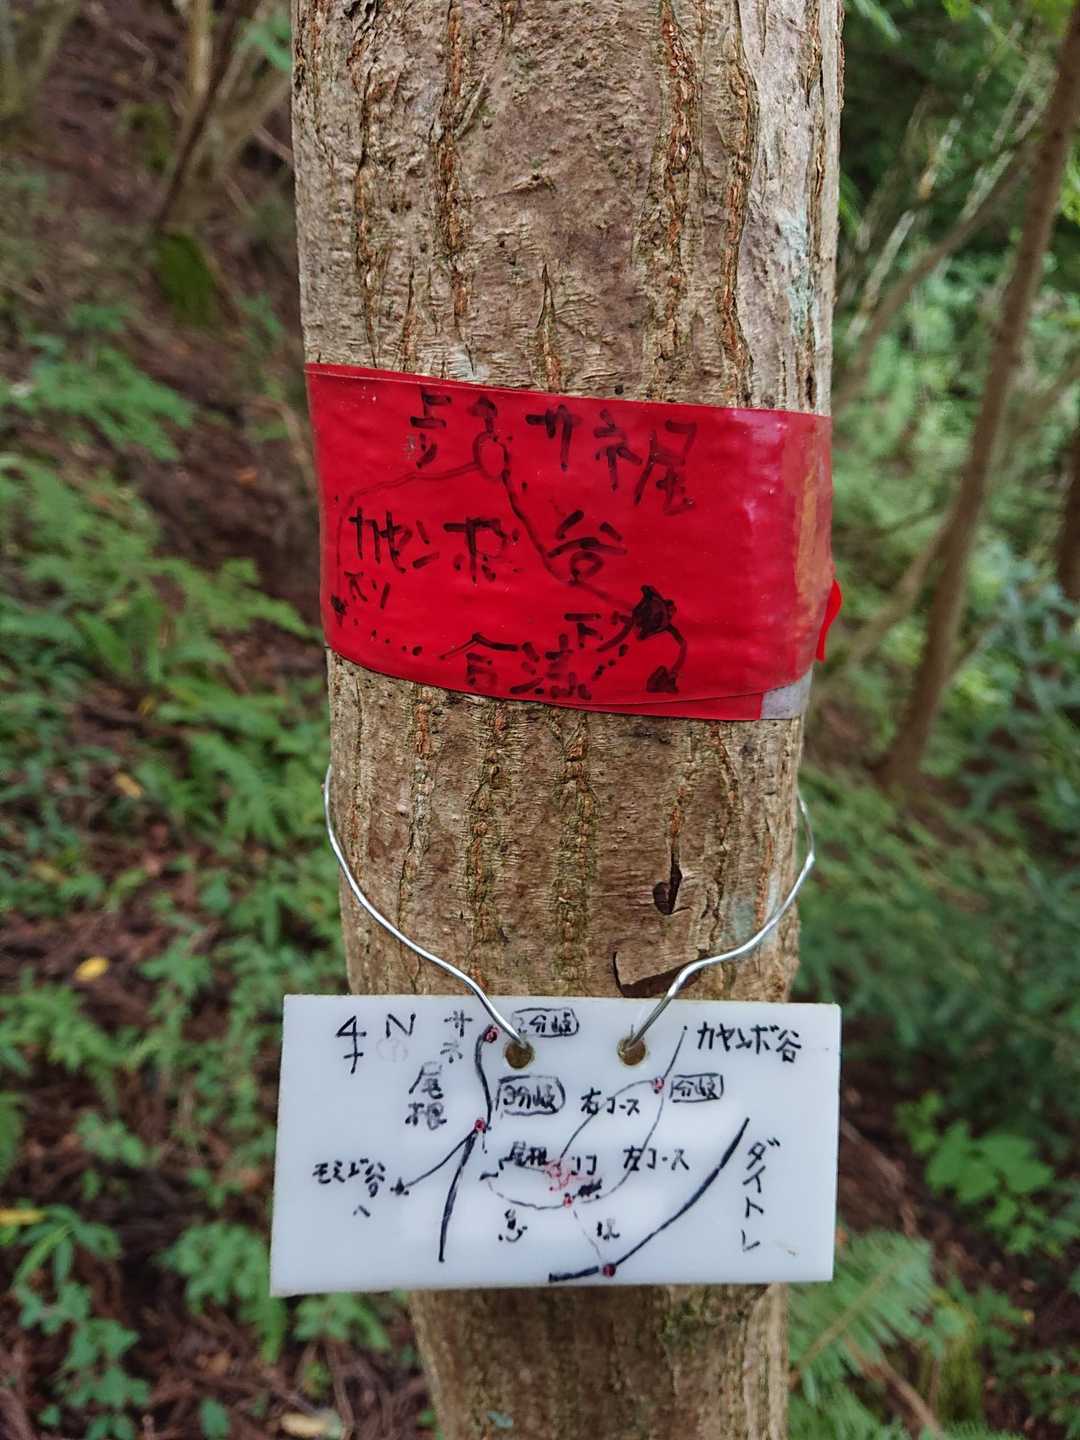 サネ尾
カヤンボ谷
合流
4 N
サネ
尾根
2分岐
カヤンボ谷
3分岐
右コース
1分岐
モミジ谷
へ
尾根
ココ
左コース
ダイトレ
急